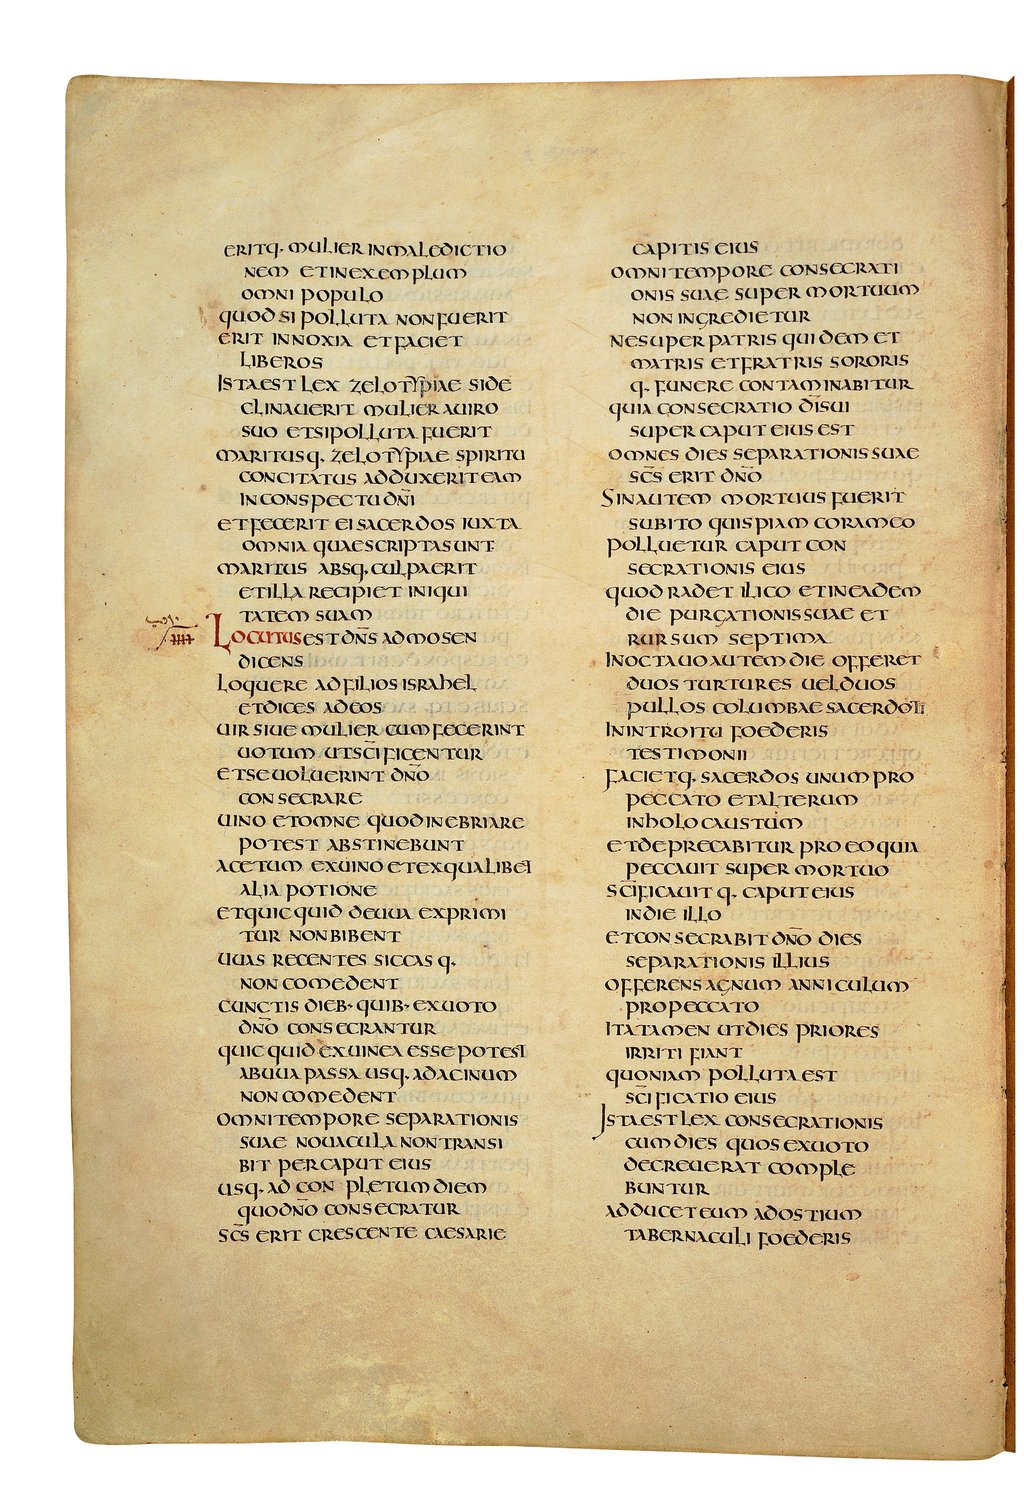 ERITQ· MULIER IN MALEDICTIO
NEM ET IN EXEMPLUM
OMNI POPULO
QUOD SI POLLUTA NON FUERIT
ERIT INNOXIA ET FACIET
LIBEROS
ISTA EST LEX ZELOTYPIAE SI DE
CLINAUERIT MULIER A UIRO
SUO ET SI POLLUTA FUERIT
MARITUSQ· ZELOTYPIAE SPIRITU
CONCITATUS ADDUXERIT EAM
IN CONSPECTU DN̄I
ET FECERIT EI SACERDOS IUXTA
OMNIA QUAE SCRIPTA SUNT
MARITUS ABSQ· CULPA ERIT
ET ILLA RECIPIET INIQUI
TATEM SUAM
LOCUTUS EST DN̄S AD MOSEN
DICENS
LOQUERE AD FILIOS ISRAHEL
ET DICES AD EOS
UIR SIUE MULIER CUM FECERINT
UOTUM UT SC̄IFICENTUR
ET SE UOLUERINT DN̄O
CONSECRARE
UINO ET OMNE QUOD INEBRIARE
POTEST ABSTINEBUNT
ACETUM EX UINO ET EX QUALIBET
ALIA POTIONE
ET QUICQUID DE UUA EXPRIMI
TUR NON BIBENT
UUAS RECENTES SICCASQ·
NON COMEDENT
CUNCTIS DIEB· QUIB· EX UOTO
DN̄O CONSECRANTUR
QUICQUID EX UINEA ESSE POTEST
AB UUA PASSA USQ· AD ACINUM
NON COMEDENT
OMNI TEMPORE SEPARATIONIS
SUAE NOUACULA NON TRANSI
BIT PER CAPUT EIUS
USQ· AD CONPLETUM DIEM
QUO DN̄O CONSECRATUR
SC̄S ERIT CRESCENTE CAESARIE
CAPITIS EIUS
OMNI TEMPORE CONSECRATI
ONIS SUAE SUPER MORTUUM
NON INGREDIETUR
NE SUPER PATRIS QUIDEM ET
MATRIS ET FRATRIS SORORIS
Q· FUNERE CONTAMINABITUR
QUIA CONSECRATIO DĪ SUI
SUPER CAPUT EIUS EST
OMNES DIES SEPARATIONIS SUAE
SC̄S ERIT DN̄O
SIN AUTEM MORTUUS FUERIT
SUBITO QUISPIAM CORAM EO
POLLUETUR CAPUT CON
SECRATIONIS EIUS
QUOD RADET ILICO ET IN EADEM
DIE PURGATIONIS SUAE ET
RURSUM SEPTIMA
IN OCTAUO AUTEM DIE OFFERET
DUOS TURTURES UEL DUOS
PULLOS COLUMBAE SACERDOTI
IN INTROITU FOEDERIS
TESTIMONII
FACIETQ· SACERDOS UNUM PRO
PECCATO ET ALTERUM
IN HOLOCAUSTUM
ET DEPRECABITUR PRO EO QUIA
PECCAUIT SUPER MORTUO
SC̄IFICAUITQ· CAPUT EIUS
IN DIE ILLO
ET CONSECRABIT DN̄O DIES
SEPARATIONIS ILLIUS
OFFERENS AGNUM ANNICULUM
PRO PECCATO
ITA TAMEN UT DIES PRIORES
IRRITI FIANT
QUONIAM POLLUTA EST
SC̄IFICATIO EIUS
ISTA EST LEX CONSECRATIONIS
CUM DIES QUOS EX UOTO
DECREUERAT COMPLE
BUNTUR
ADDUCET EUM AD OSTIUM
TABERNACULI FOEDERIS